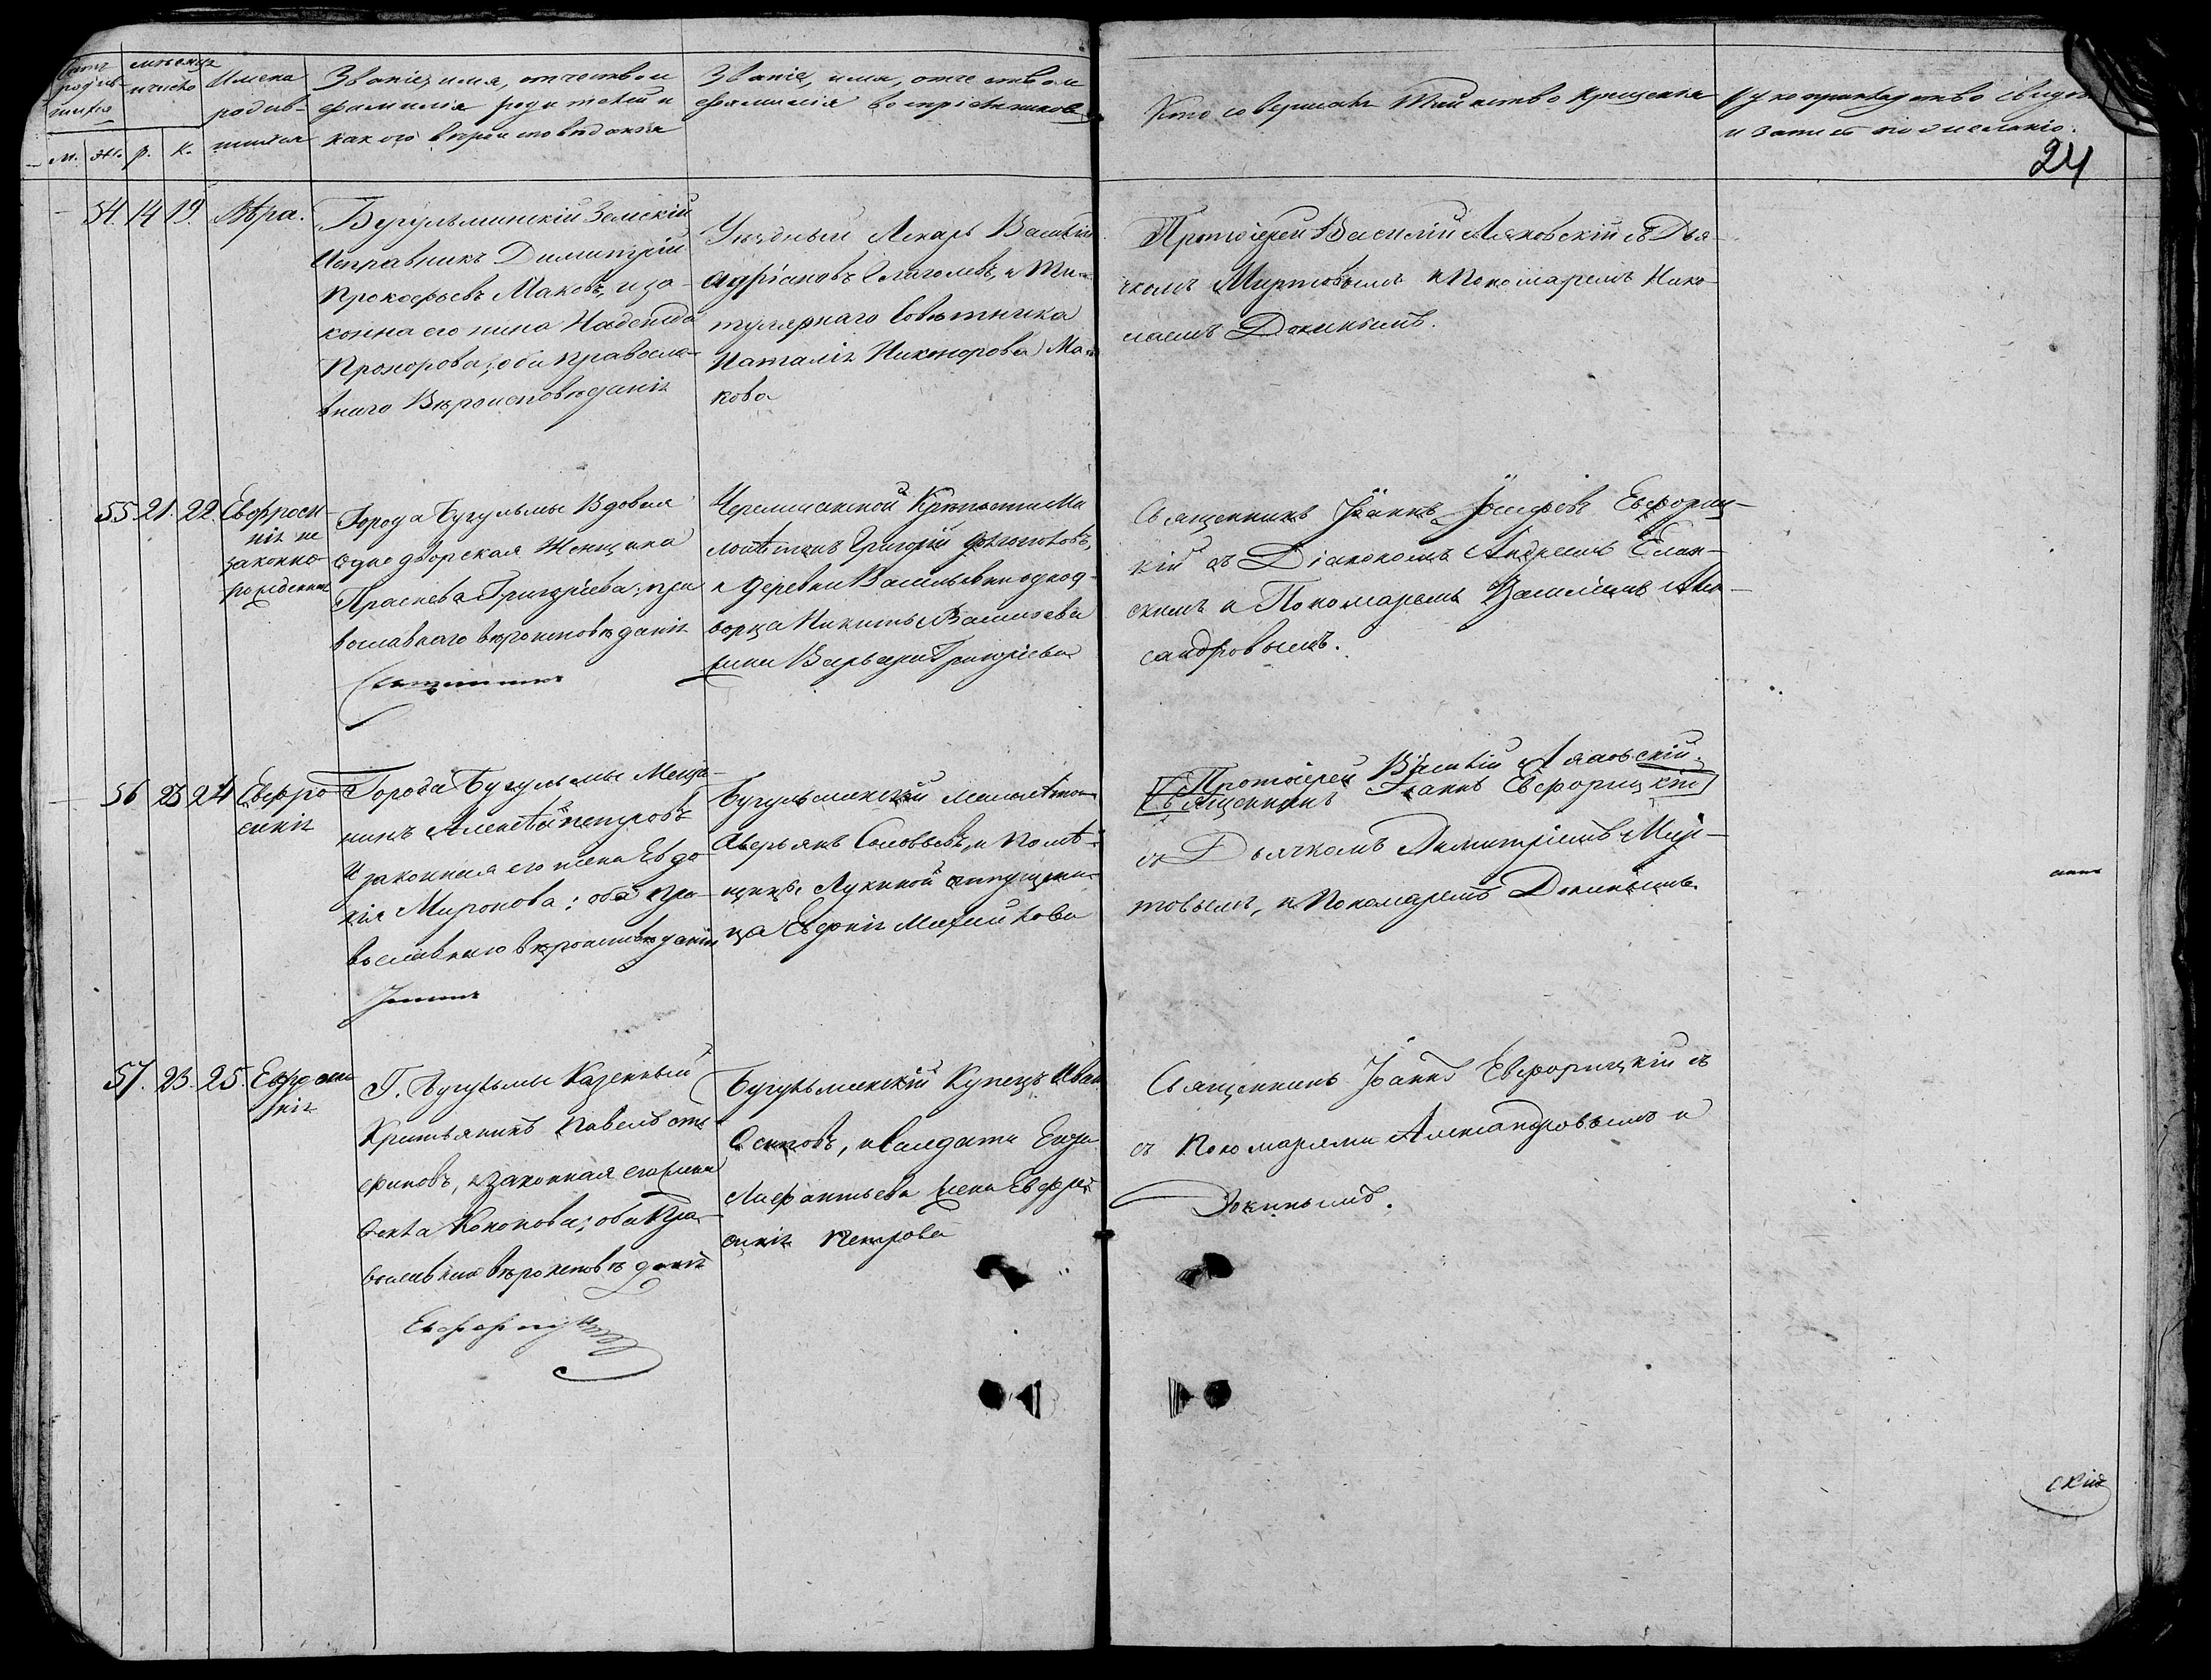 Счетъ родив-шихся
Мѣсяцъ и число
Имена родив-шихся
Званіе, имя, отчество и
фамилія родителей и
какого вѣроисповѣданія
Званіе, имя, отчество и
фамилія воспріемниковъ
Кто совершалъ Таинство Крещенія
Рукоприкладство свидѣт.
и записи по желанію.
м. ж. р. к.
24
54. 14 19. Вѣра.
Бугульминскій Земскій
Исправникъ Димитрій
Прокофьевъ Маковъ, и за-
конная его жина Надежда
Прохорова; оба Правосла-
внаго Вѣроисповѣданія
Уѣздный Лекарь Василій
Адріановъ Глаголевъ, и Ти-
тулярнаго Совѣтника
Наталія Никонорова Ма-
кова
Протоіерей Василій Ляховскій съ Дья-
чкомъ Миртовымъ и Пономаремъ Нико-
лаемъ Докинымъ.
55 21. 22. Евфроси-
нія не
законно-
рожденная
Города Бугульмы Вдовая
однодворская Женщика
Праскева Григорьева; пра
вославнаго вѣроисповѣданія
Черемшанской Крѣпости Ма
лолѣтокъ Григорій
и деревни Васильевки однод-
ворца Никиты Васильева
жена Варвара Григорьева
Священникъ Іоаннъ Іосифовъ Евфориц-
кій съ Діакономъ Андреемъ Елан-
скимъ и Пономаремъ Василіемъ Алек-
сандровымъ.
56 23 24 Евфро
синія
Города Бугульмы Мѣща-
нинъ Алексѣй Петровъ
и законная его жена Евдо-
кія Миронова; оба пра-
вославнаго вѣроисповѣданія
Бугульминскій Малолѣток
Аверьянъ Соловьевъ, и Помѣ-
щицы Лукиной отпущени-
ца Евдокія Михайлова
Протоіерей Василій Ляховскій
Священникъ Іоаннъ Евфорицкій
съ Дьячкомъ Димитріемъ Мир-
товымъ, и Пономаремъ Докинымъ.
57. 23. 25. Евфроси
нія
Г. Бугульмы Казенный
Крестьянинъ Павелъ
, и законная его жена
Фекла Кононова; оба Пра-
вославнаго вѣроисповѣданія
Бугульминскій Купецъ Иван
Осиповъ, и Салдата
жена Евфро
синія Петрова
Священникъ Іоаннъ Евфорицкій съ
съ Пономарями Александровымъ и
Докинымъ.
скій